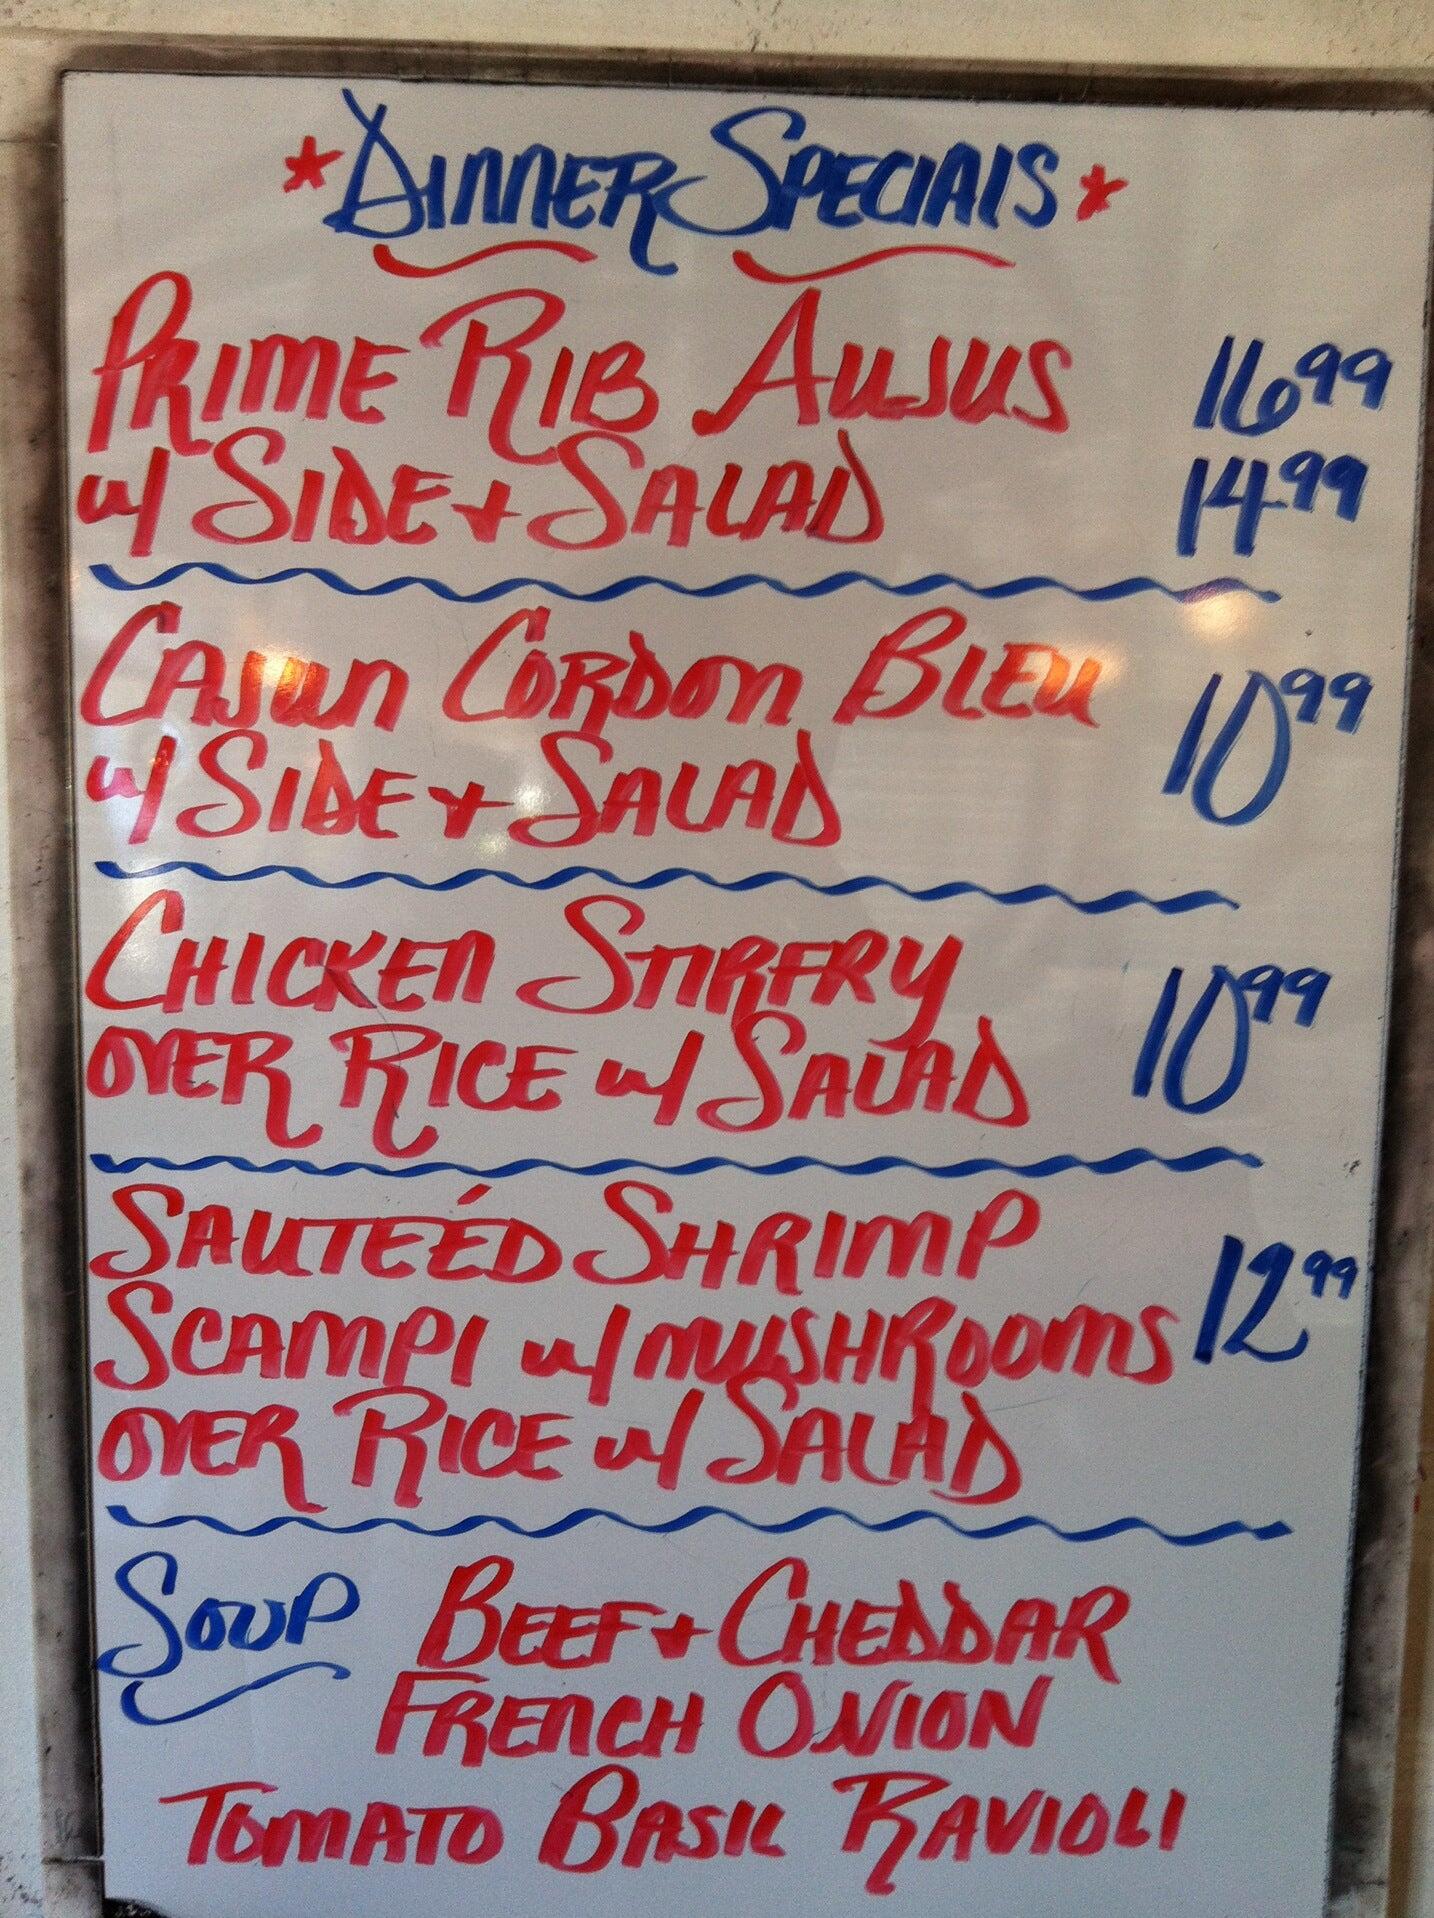 *Dinner Specials*
Prime Rib Aujus 16.99
w/ Side + Salad 14.99
Cajun Cordon Bleu 10.99
w/ Side + Salad
Chicken Stirfry 10.99
over Rice w/ Salad
Sauteéd Shrimp
Scampi w/ mushrooms 12.99
over Rice w/ Salad
Soup Beef + Cheddar
French Onion
Tomato Basil Ravioli